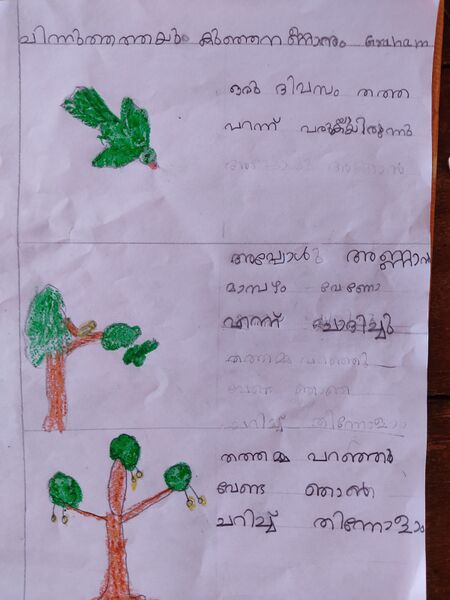 ചിന്നുത്തത്തയും കുഞ്ഞനണ്ണാനും
ഒരു ദിവസം തത്ത
പറന്ന് വരുകയായിരുന്നു
അപ്പോൾ അണ്ണാൻ
മാമ്പഴം വേണോ
എന്ന് ചോദിച്ചു
തത്തമ്മ പറഞ്ഞു
വേണ്ട ഞാൻ
പറിച്ച് തിന്നോളാം
തത്തമ്മ പറഞ്ഞു
വേണ്ട ഞാൻ
പറിച്ച് തിന്നോളാം